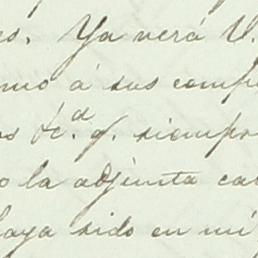 es. Ya verá V.
mo á sus comp
os &c.ª q. siempr
o la adjunta ca
haya sido en mi